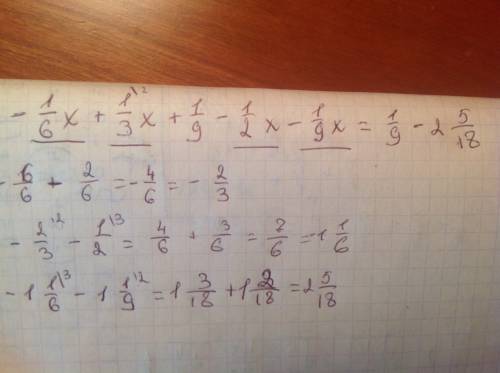 - 1/6 x + 1\2/3 x + 1/9 - 1/2 x - 1/9 x = 1/9 - 2 5/18
- 6/6 + 2/6 = - 4/6 = - 2/3
- 2\2/3 - 1\3/2 = 4/6 + 3/6 = 7/6 = 1 1/6
- 1 1\3/6 - 1 1\2/9 = 1 3/18 + 1 2/18 = 2 5/18